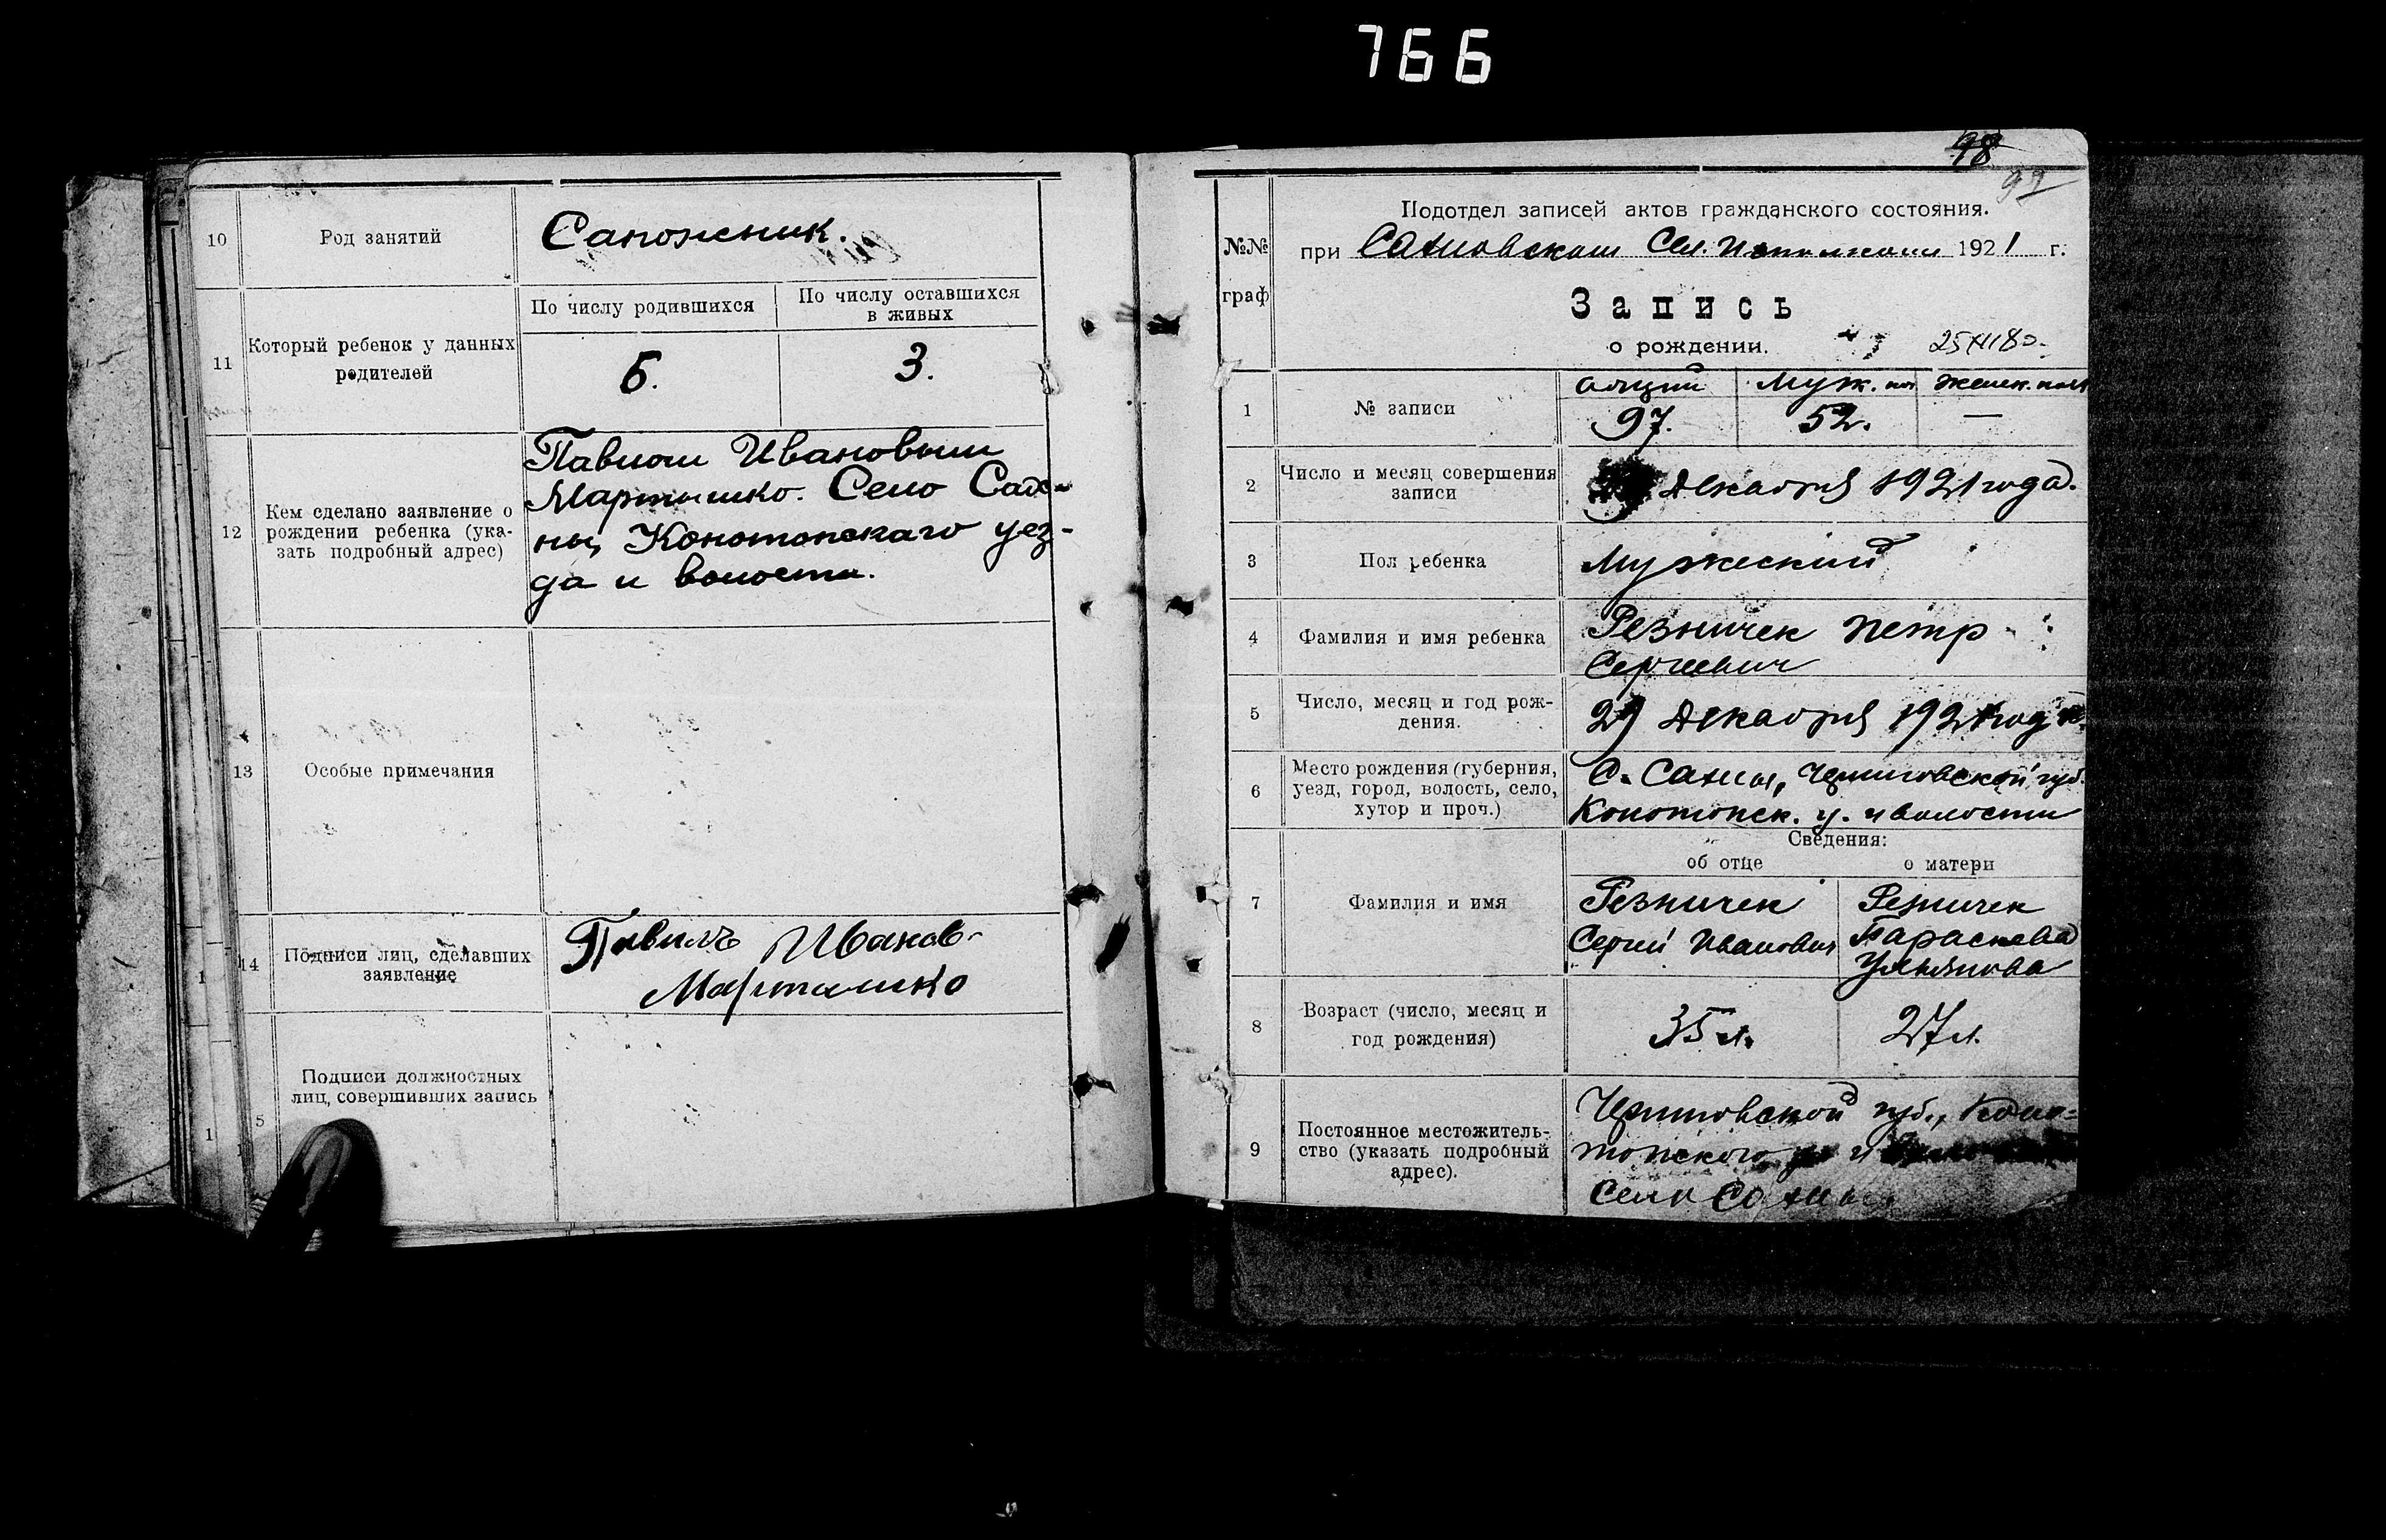 766
10
Род занятий
Сапожник.
11
Который ребенок у данных
родителей
По числу родившихся
По числу оставшихся
в живых
5.
3.
12
Кем сделано заявление о
рождении ребенка (ука-
зать подробный адрес)
Павлом Ивановым
Мартышко. Село Сах-
ны, Конотопскаго уез-
да и волости.
13
Особые примечания
14
Подписи лиц, сделавших
заявление
Павилъ Иванов
Марташко
5
Подписи должностных
лиц, совершивших запись
98
99
№№
граф
Подотдел записей актов гражданского состояния.
при Сахновском Сел. Исполкоме 1921 г.
Запись
о рождении.
1
№ записи
общий
муж. пол
женск. пола
97.
52.
—
2
Число и месяц совершения
записи
Декабря 1921 года.
3
Пол ребенка
Мужеский
4
Фамилия и имя ребенка
Резничек Петр
Сергиевич
5
Число, месяц и год рож-
дения.
29 Декабря 1921 года
6
Место рождения (губерния,
уезд, город, волость, село,
хутор и проч.)
С. Сахны, Черниговской губ.
Конотопск. у. и волости
Сведения:
об отце
о матери
7
Фамилия и имя
Резничек
Сергий Иванович
Резничек
Параскева
Ульянова
8
Возраст (число, месяц и
год рождения)
35 л.
27 л.
9
Постоянное местожитель-
ство (указать подробный
адрес).
Черниговской губ., Коно-
топского у. и
село Сахны